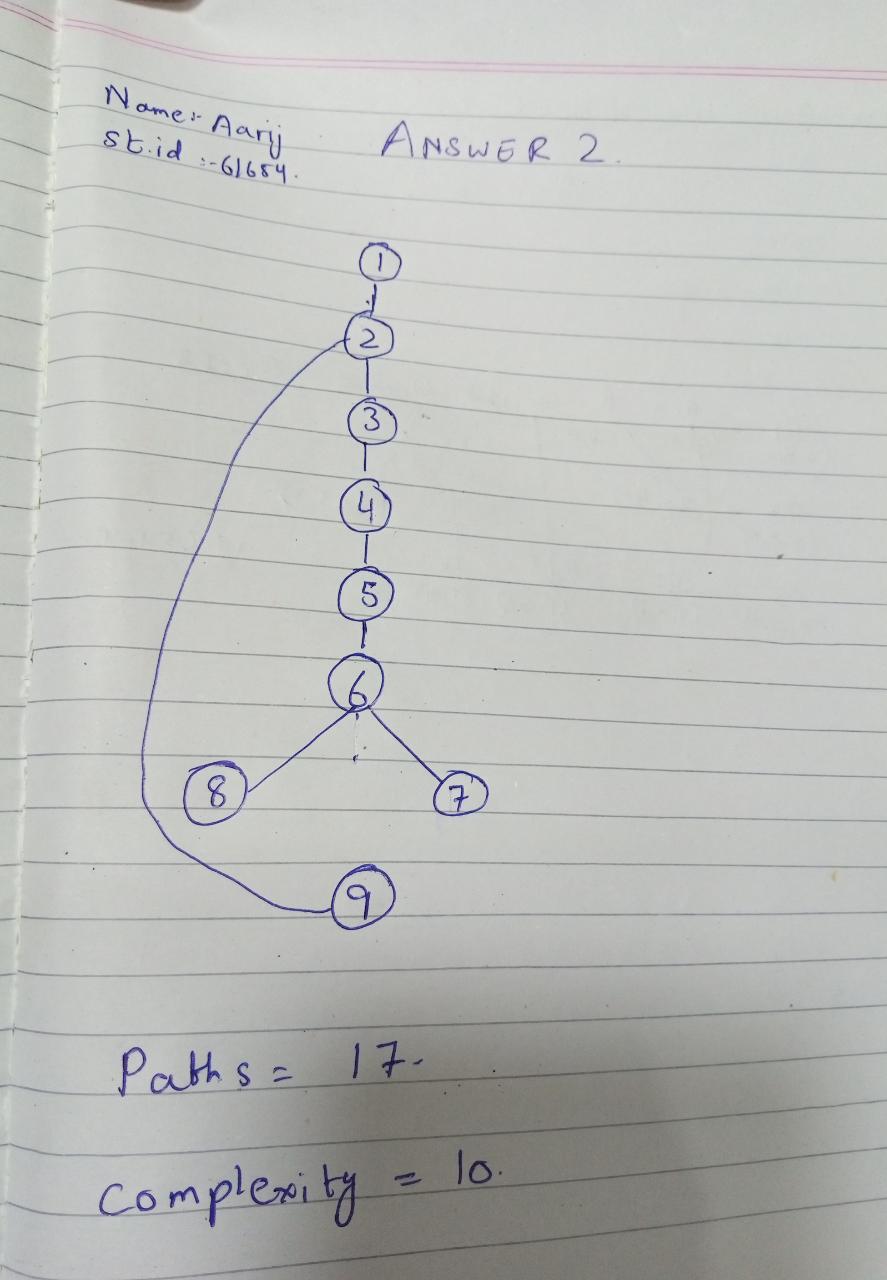 Name:- Aarij
St.id :-61654.
ANSWER 2.
1
2
3
4
5
6
8
7
9
Paths = 17.
Complexity = 10.